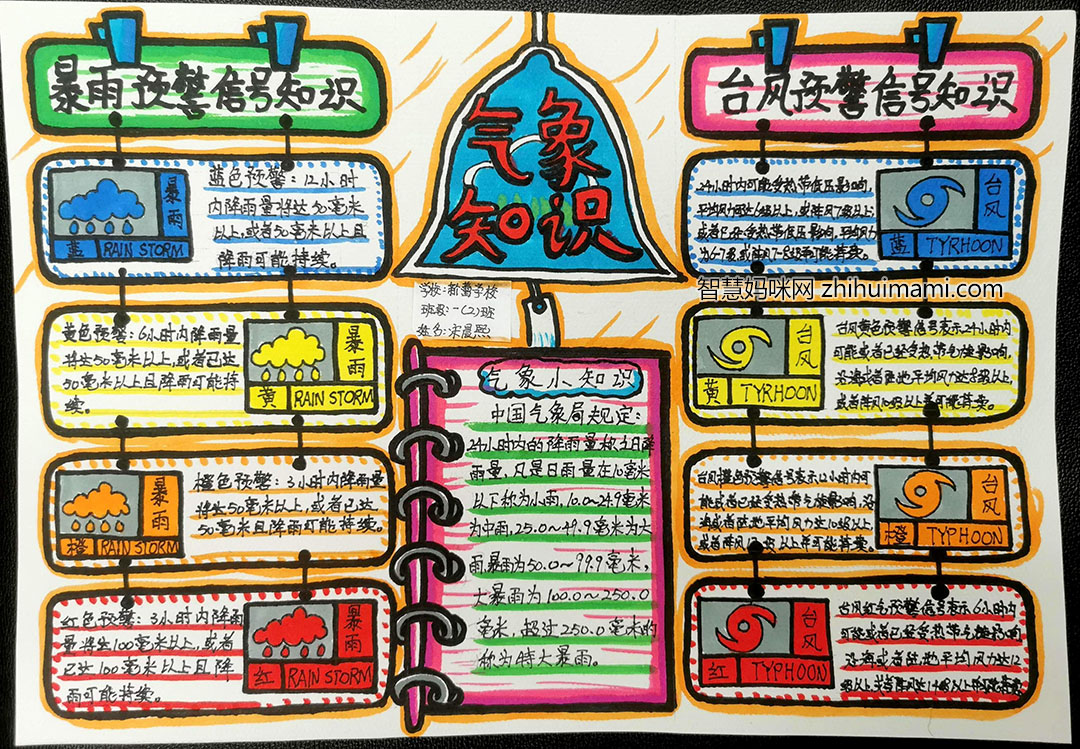 暴雨预警信号知识
蓝色预警：12小时
内降雨量将达50毫米
以上，或者50毫米以上且
降雨可能持续。
暴雨
蓝 RAIN STORM
黄色预警：6小时内降雨量
将达50毫米以上，或者已达
50毫米以上且降雨可能持
续。
暴雨
黄 RAIN STORM
橙色预警：3小时内降雨量
将达50毫米以上，或者已达
50毫米且降雨可能持续。
暴雨
橙 RAIN STORM
红色预警：3小时内降雨
量将达100毫米以上，或者
已达100毫米以上且降
雨可能持续。
暴雨
红 RAIN STORM
气象
知识
学校：新蕾学校
班级：一(2)班
姓名：宋晨熙
气象小知识
中国气象局规定：
24小时内的降雨量称之日降
雨量，凡是日雨量在10毫米
以下称为小雨，10.0~24.9毫米
为中雨，25.0~49.9毫米为大
雨，暴雨为50.0~99.9毫米，
大暴雨为100.0~250.0
毫米，超过250.0毫米的
称为特大暴雨。
台风预警信号知识
24小时内可能受热带低压影响，
平均风力可达6级以上，或阵风7级以上；
或者已经受热带低压影响，平均风力
为6-7级，或阵风7-8级并可能持续。
台风
蓝 TYRHOON
智慧妈咪网 zhihuimami.com
台风黄色预警信号表示24小时内
可能或者已经受热带气旋影响，
沿海或者陆地平均风力达8级以上，
或者阵风10级以上并可能持续。
台风
黄 TYRHOON
台风橙色预警信号表示12小时内可
能或者已经受热带气旋影响，沿
海或者陆地平均风力达10级以上，
或者阵风12级以上并可能持续。
台风
橙 TYPHOON
台风红色预警信号表示6小时内
可能或者已经受热带气旋影响
沿海或者陆地平均风力达12
级以上，或者阵风达14级以上并可能持续
台风
红 TYPHOON